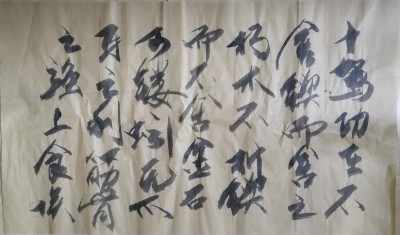 十駕功在不
舍鍥而舍之
朽木不折鍥
而不舍金石
可鏤蚓无爪
牙之利筋骨
之强上食埃